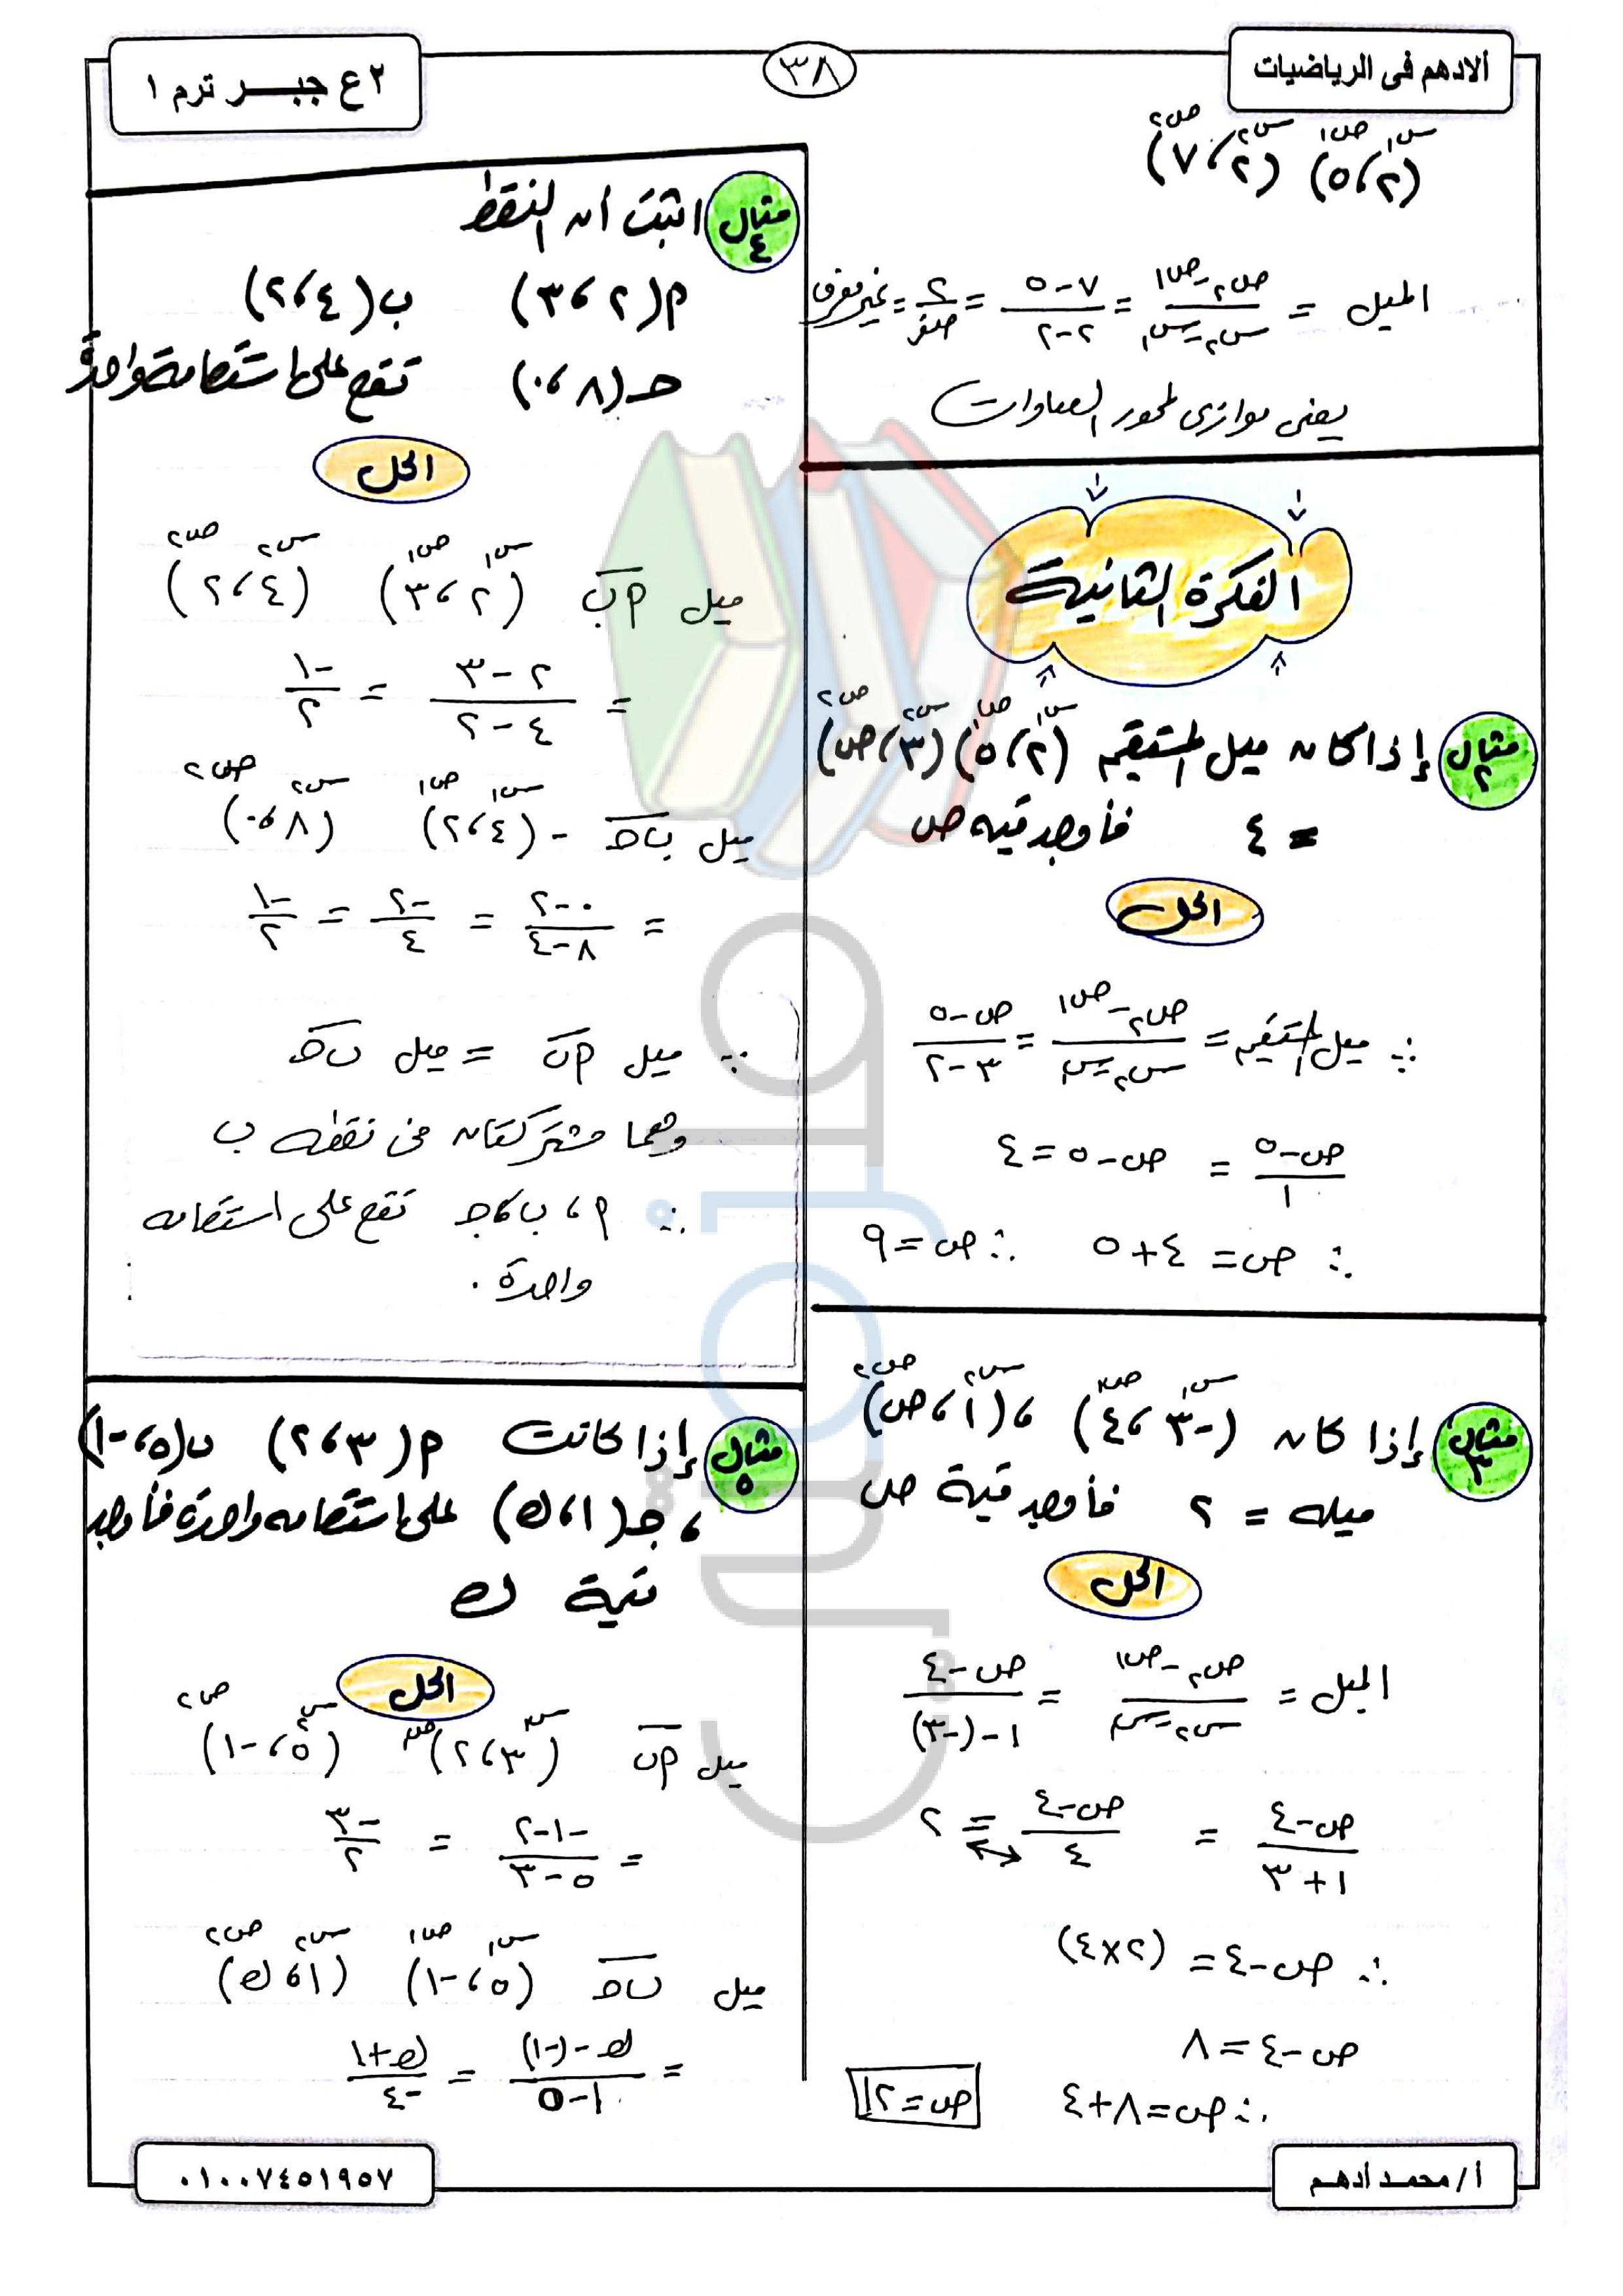 ألادهم فى الرياضيات
٣٨
٢ ع جبـــر ترم ١
س١ ص١ س٢ ص٢
(٢ ، ٥) (٢ ، ٧)
الميل = ص٢ - ص١ / س٢ - س١ = ٧ - ٥ / ٢ - ٢ = ٢ / صفر = غير معرف
يعنى موازى لمحور الصادات
الفكرة الثانية
مثال ٢ إذا كان ميل المستقيم (٢ ، ٥) (٣ ، ص)
س١ ص١ س٢ ص٢
= ٤ فأوجد قيمه ص
الحل
∴ ميل المستقيم = ص٢ - ص١ / س٢ - س١ = ص - ٥ / ٣ - ٢
ص - ٥ / ١ = ص - ٥ = ٤
∴ ص = ٤ + ٥ ∴ ص = ٩
س١ ص١ س٢ ص٢
مثال ٣ إذا كان (-٣ ، ٤) ، (١ ، ص)
ميله = ٢ فأوجد قيمة ص
الحل
الميل = ص٢ - ص١ / س٢ - س١ = ص - ٤ / ١ - (-٣)
ص - ٤ / ١ + ٣ = ص - ٤ / ٤ = ٢
∴ ص - ٤ = (٢ × ٤)
ص - ٤ = ٨
∴ ص = ٨ + ٤ ص = ١٢
مثال ٤ اثبت أن النقط
م (٢ ، ٣) ب (٤ ، ٢)
حـ (٨ ، ٠) تقع على استقامة واحدة
الحل
س١ ص١ س٢ ص٢
ميل م ب (٢ ، ٣) (٤ ، ٢)
= ٢ - ٣ / ٤ - ٢ = -١ / ٢
س١ ص١ س٢ ص٢
ميل ب حـ - (٤ ، ٢) (٨ ، ٠)
= ٠ - ٢ / ٨ - ٤ = -٢ / ٤ = -١ / ٢
∵ ميل م ب = ميل ب حـ
وهما مشتركتان فى نقطه ب
∴ م ، ب ، جـ تقع على استقامه
واحدة .
مثال ٥ إذا كانت م (٣ ، ٢) ب (٥ ، -١)
، جـ (١ ، ك) على استقامه واحدة فأوجد
قيمة ك
الحل
س١ ص١ س٢ ص٢
ميل م ب (٣ ، ٢) (٥ ، -١)
= -١ - ٢ / ٥ - ٣ = -٣ / ٢
س١ ص١ س٢ ص٢
ميل ب حـ (٥ ، -١) (١ ، ك)
= ك - (-١) / ١ - ٥ = ك + ١ / -٤
أ/ محمد أدهم
٠١٠٠٧٤٥١٩٥٧